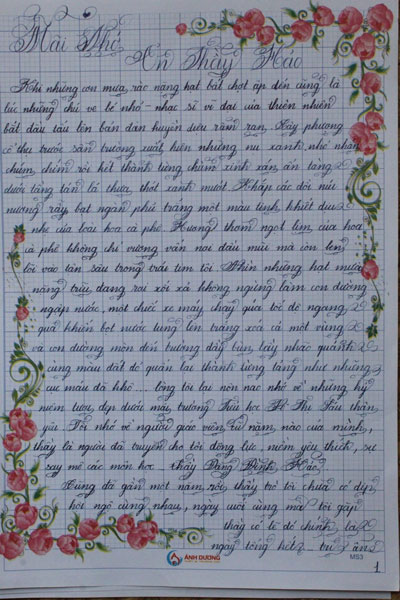 Mãi Nhớ
Ơn Thầy Hảo
Khi những cơn mưa rào nặng hạt bất chợt ập đến cũng là
lúc những chú ve bé nhỏ - nhạc sĩ vĩ đại của thiên nhiên
bắt đầu tấu lên bản đàn huyền diệu râm ran. Cây phượng
cổ thụ trước sân trường xuất hiện những nụ xanh nhỏ nhắn
chúm chím rồi kết thành từng chùm xinh xắn ẩn từng
dưới tầng tán lá thưa thớt xanh mướt. Khắp các đồi núi
nương rẫy bạt ngàn phủ trắng một màu tinh khiết dịu
nhẹ của loài hoa cà phê. Hương thơm ngọt lịm của hoa
cà phê không chỉ vương vấn nơi đầu mũi mà còn len
lỏi vào tận sâu trong trái tim tôi. Nhìn những hạt mưa
nặng trĩu đang rơi xối xả không ngừng làm con đường
ngập nước, một chiếc xe máy chạy qua tốc độ ngang
qua khiến bọt nước tung lên trắng xóa cả một vùng
và con đường mòn đến trường đầy bùn lầy nhão quánh
cùng màu đất đỏ quấn lại thành từng tảng như những
cục máu đã khô... lòng tôi lại nôn nao nhớ về những kỷ
niệm tươi đẹp dưới mái trường Tiểu học Võ Thị Sáu thân
yêu. Tôi nhớ về người giáo viên năm nào của mình,
thầy là người đã truyền cho tôi động lực, niềm yêu thích, sự
say mê các môn học... thầy Đặng Đình Hảo.
Cũng đã gần một năm rồi, thầy trò tôi chưa có dịp
hội ngộ cùng nhau, ngày cuối cùng mà tôi gặp
thầy có lẽ đó chính là
ngày tổng kết tri ân
ÁNH DƯƠNG
MS3
1